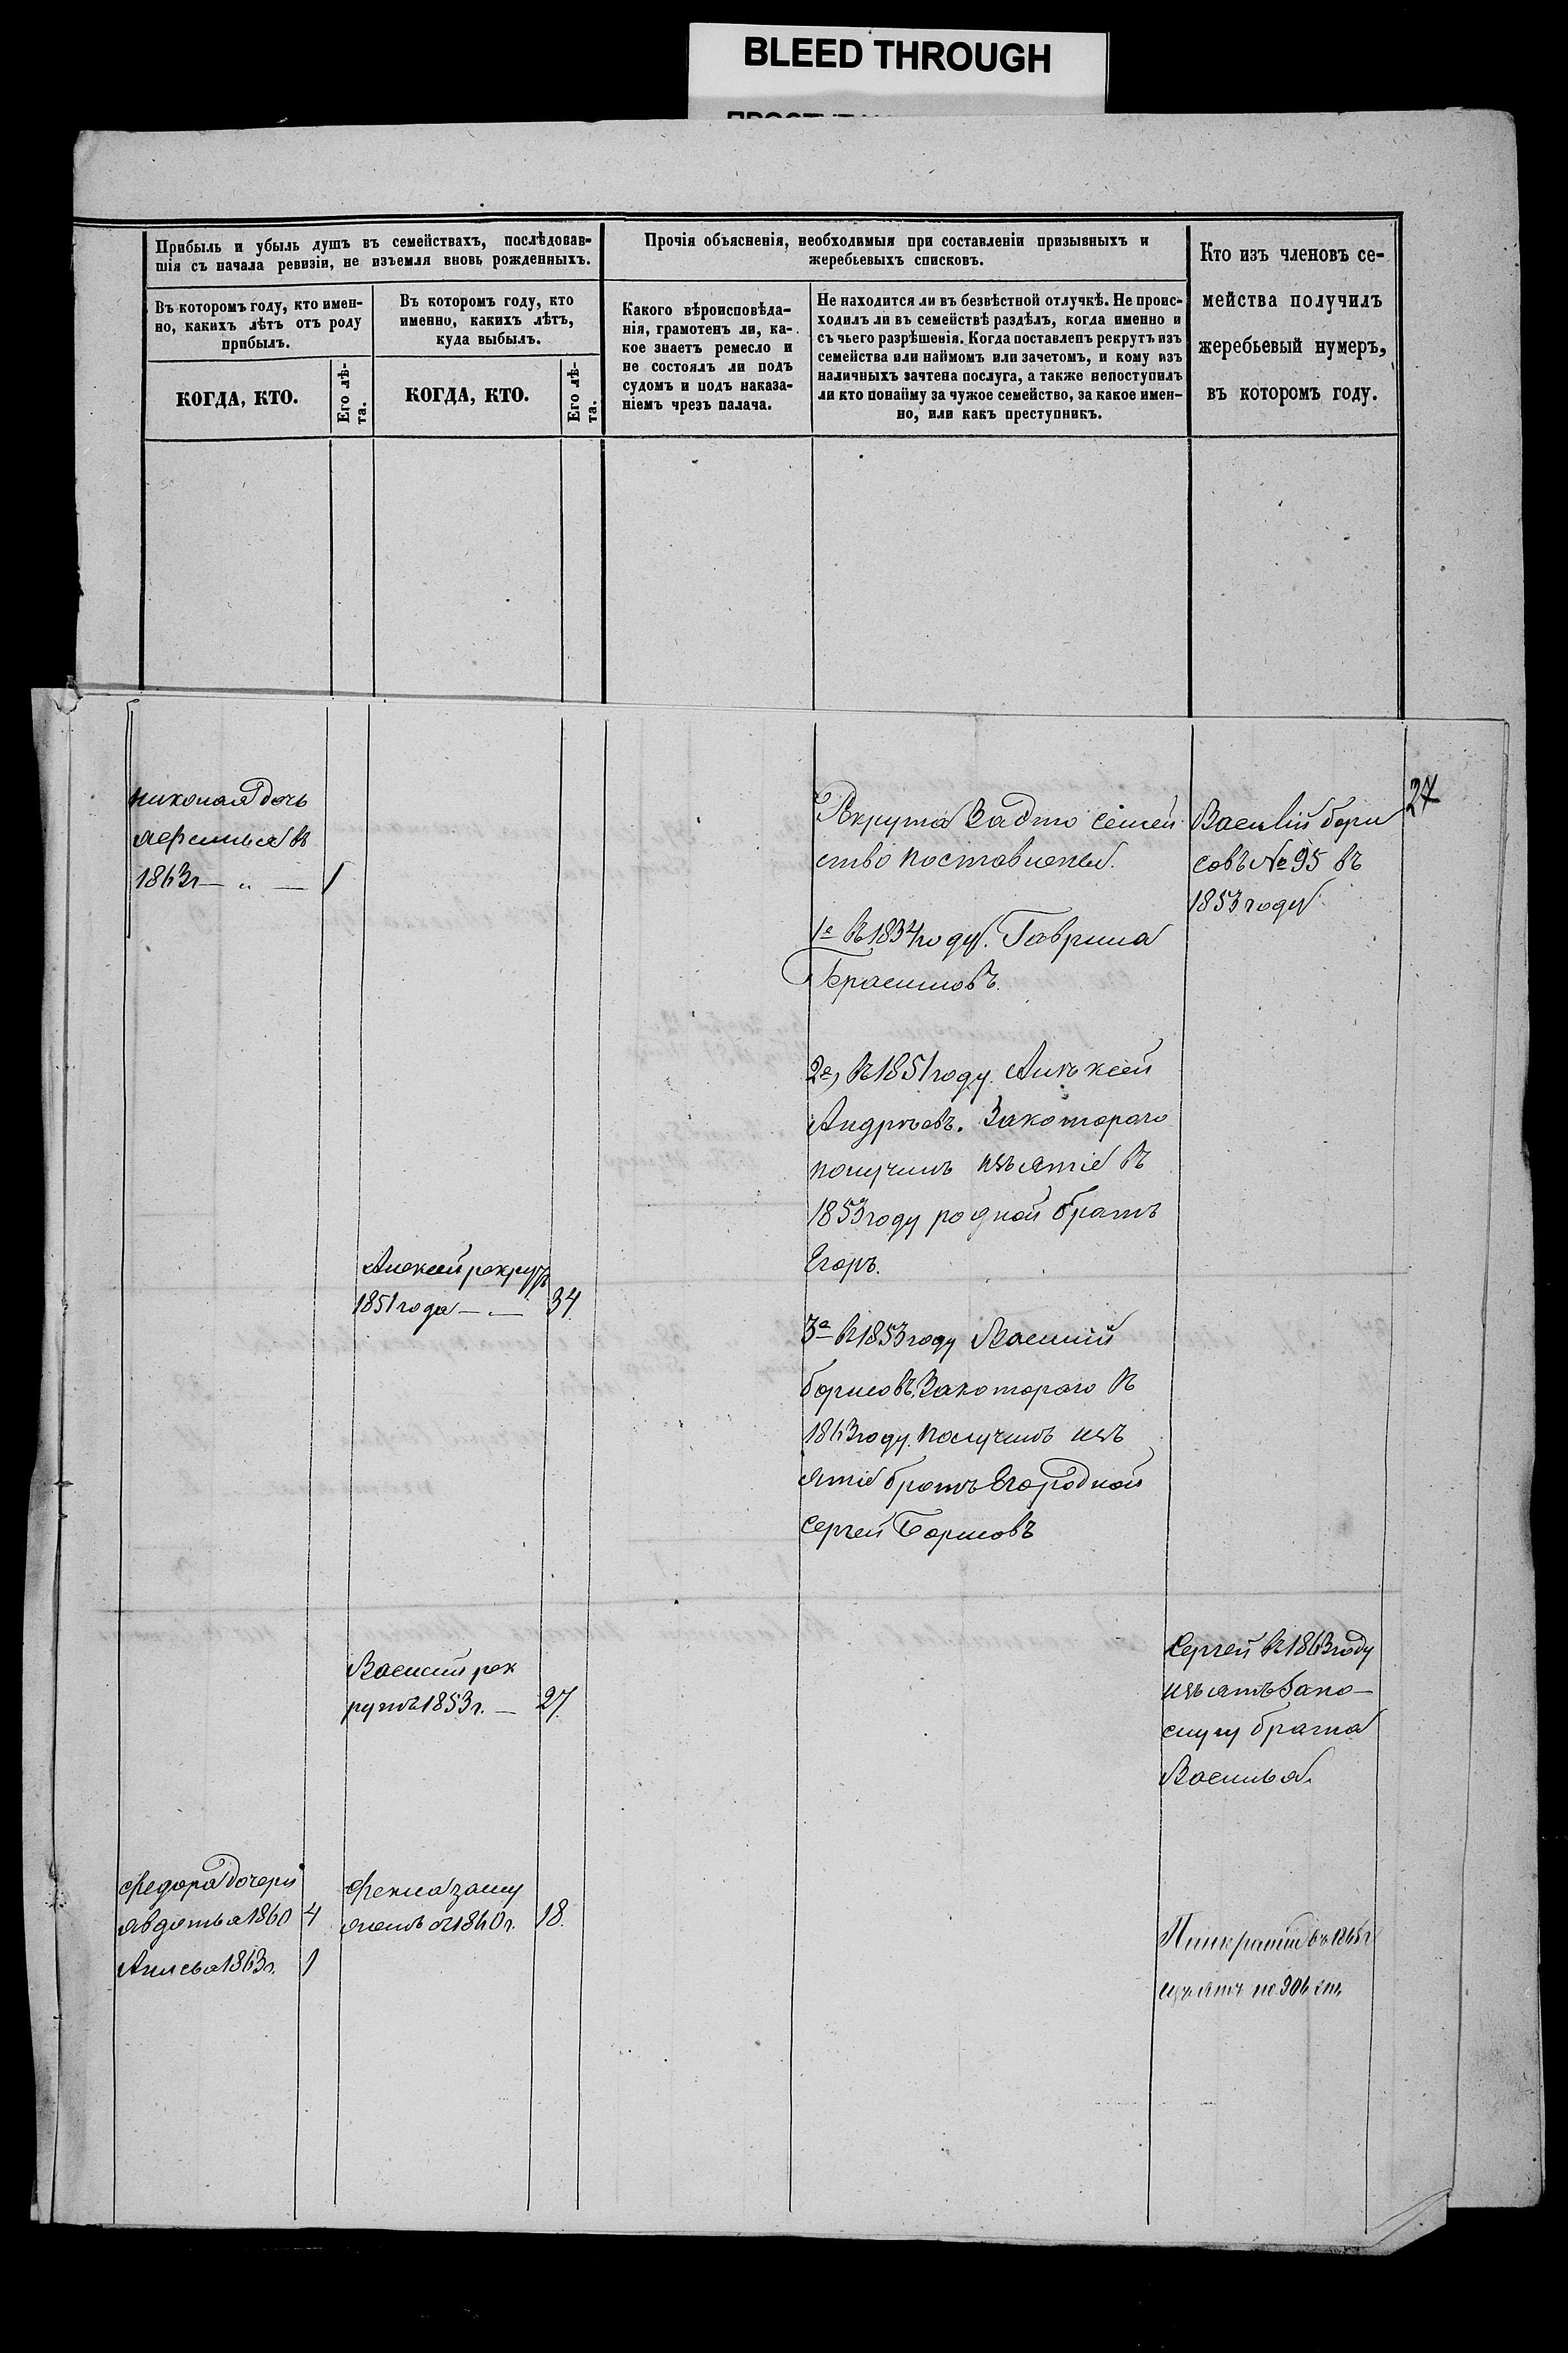 BLEED THROUGH
Прибыль и убыль душъ въ семействахъ, послѣдовав-
шія съ начала ревизіи, не изъемля вновь рожденныхъ.
Прочія объясненія, необходимыя при составленіи призывныхъ и
жеребьевыхъ списковъ.
Кто изъ членовъ се-
мейства получилъ
жеребьевый нумеръ,
въ которомъ году.
Въ которомъ году, кто имен-
но, какихъ лѣтъ отъ роду
прибылъ.
Въ которомъ году, кто
именно, какихъ лѣтъ,
куда выбылъ.
Какого вѣроисповѣда-
нія, грамотенъ ли, ка-
кое знаетъ ремесло и
не состоялъ ли подъ
судомъ и подъ наказа-
ніемъ чрезъ палача.
Не находится ли въ безвѣстной отлучкѣ. Не проис-
ходилъ ли въ семействѣ раздѣлъ, когда именно и
съ чьего разрѣшенія. Когда поставленъ рекрутъ изъ
семейства или наймомъ или зачетомъ, и кому изъ
наличныхъ зачтена послуга, а также непоступилъ
ли кто понайму за чужое семейство, за какое имен-
но, или какъ преступникъ.
КОГДА, КТО.
Его лѣ-
та.
КОГДА, КТО.
Его лѣ-
та.
27
николая дочь
въ
1863г — „ — 1
Рекрута За это семей
ство поставлены.
1е въ 1834 году. Гаврила
Герасимовъ.
2е, въ 1851 году. Алексей
Андрѣевъ. Закотораго
получилъ изъятіе въ
1853 году родной братъ
Егоръ.
3е въ 1853 году Василий
борисовъ, Закотораго въ
1863 году. получилъ изъ
ятіе братъ Его родной
Сергей Борисовъ
Василій бори
совъ № 95 въ
1853 году
Алексей рекрутъ
1851 года — „ — 34
Василий рек
рутъ 1853 г. — 27.
Сергей въ 1863 году
изъятъ Запо-
слугу брата
Василья.
Федора дочери
авдотья 1860 4
1863г. 1
Фекла заму
1860 г. 18.
Панкратій въ 1865 г
изъятъ по 306 ст.